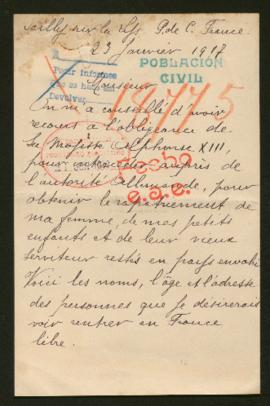 Sailly sur la Lys P. de C. France.
23 Janvier 1918
POBLACIÓN
CIVIL
Pedir informes
Devolver
19775
Monsieur
On m'a conseillé d'avoir
recours à l'obligeance de
Sa Majesté Alphonse XIII,
pour intercéder auprès de
l'autorité Allemande, pour
Hecho
obtenir le rapatriement de
ma femme, de mes petits
enfants et de leur vieux
serviteur restés en pays envahi
Voici les noms, l'âge et l'adresse
des personnes que je désirerais
voir rentrer en France
libre.